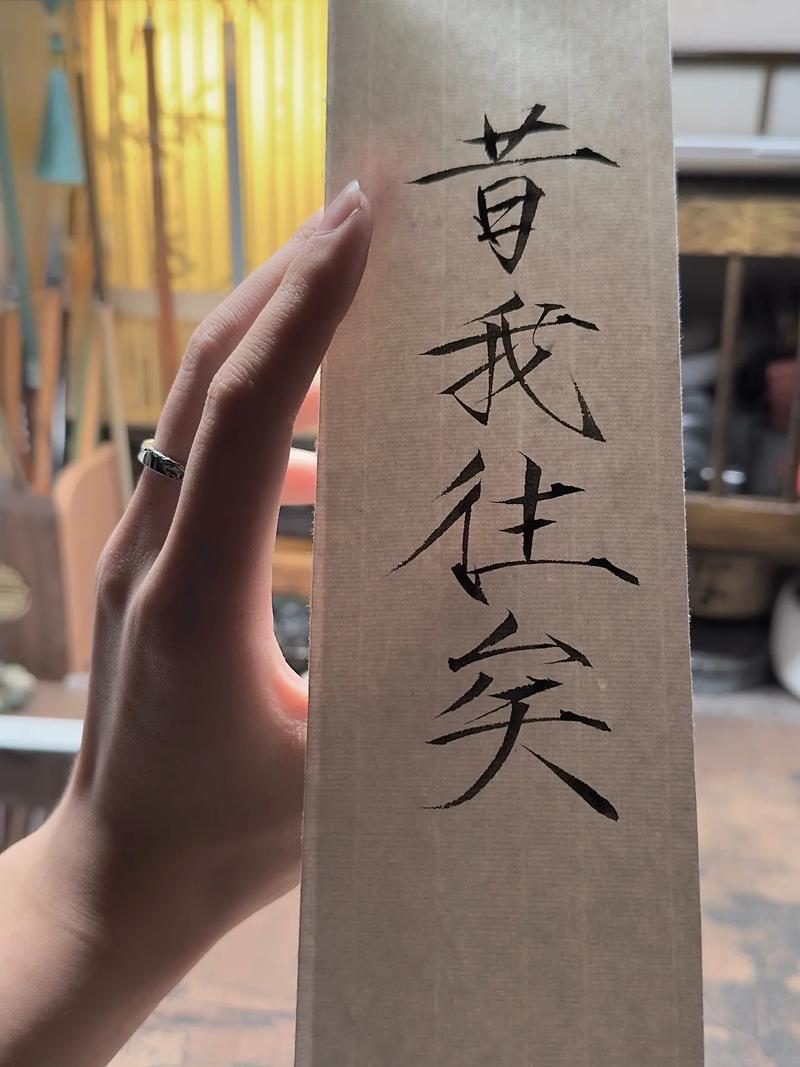 昔我往矣